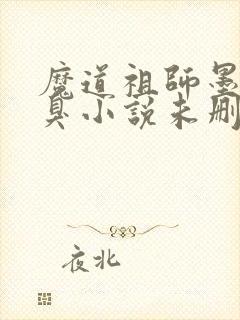 魔道祖師墨
臭小說未刪
夜北